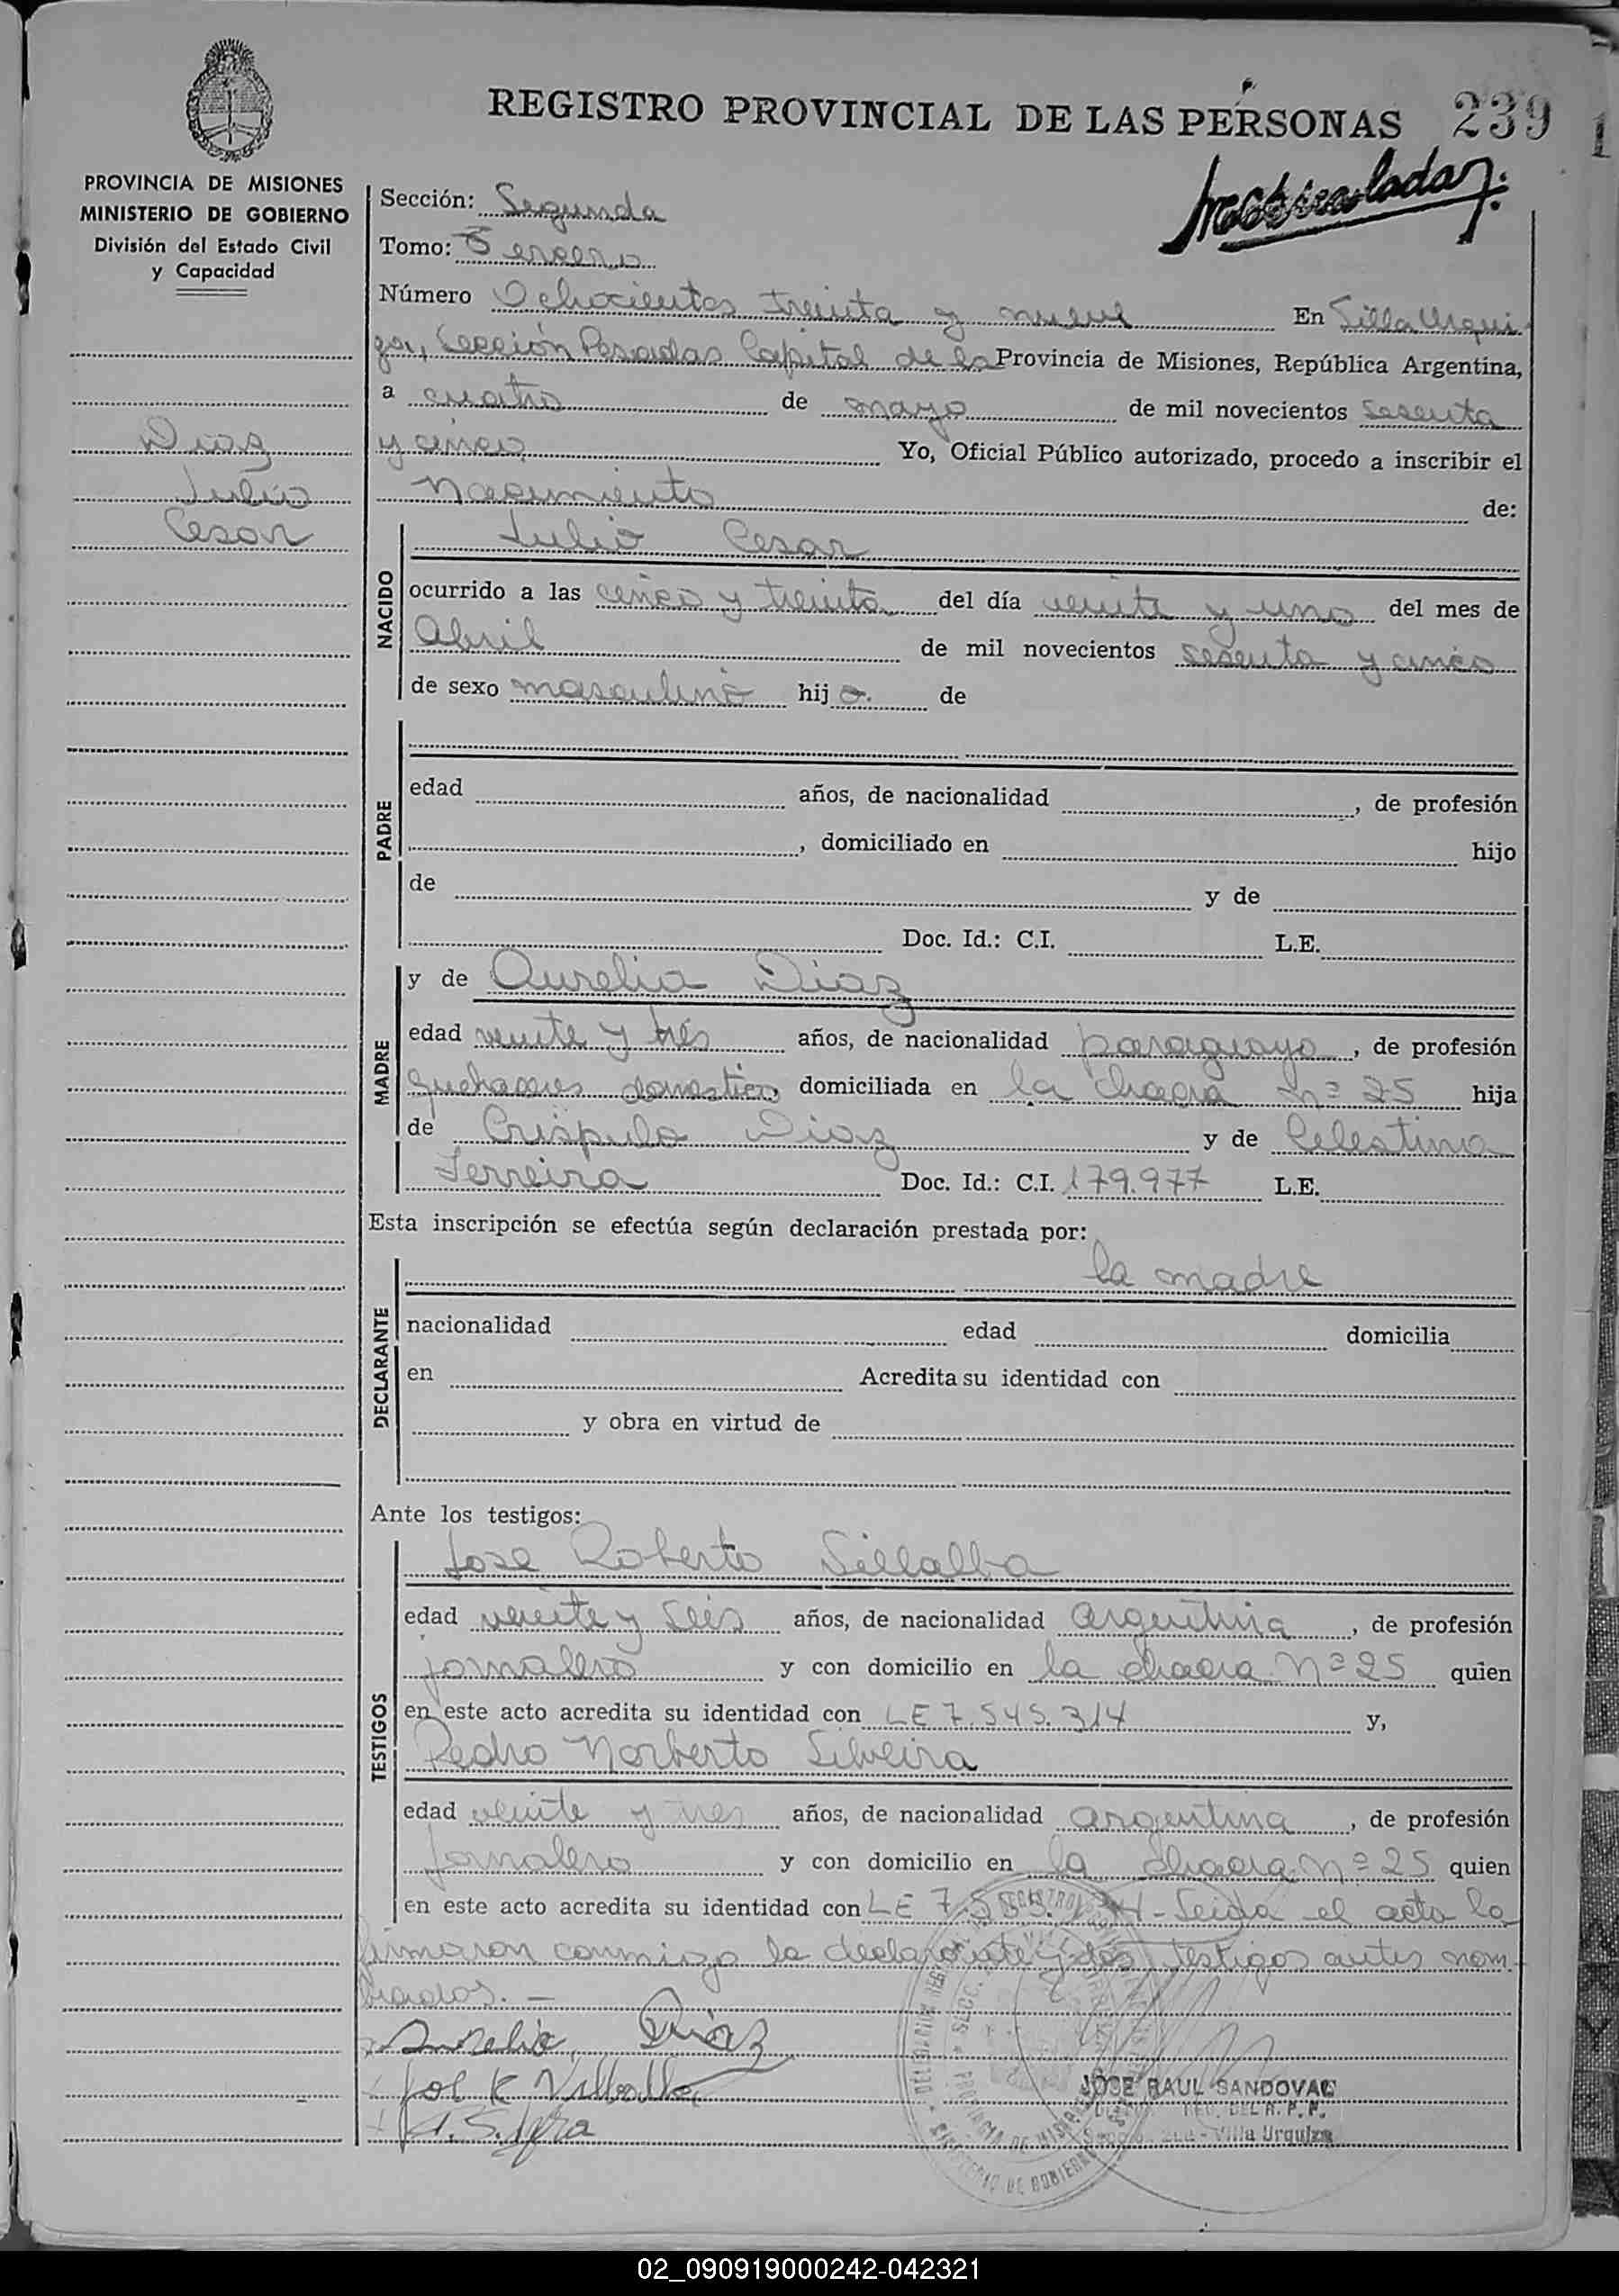 REGISTRO PROVINCIAL DE LAS PERSONAS 239
1
PROVINCIA DE MISIONES
MINISTERIO DE GOBIERNO
División del Estado Civil
y Capacidad
Diaz
Julio
Cesar
Sección: Segunda
Tomo: Tercero
Número Ochocientos treinta y nueve En Villa Urqui
za, Sección Posadas Capital de la Provincia de Misiones, República Argentina,
a cuatro de mayo de mil novecientos sesenta
y cinco Yo, Oficial Público autorizado, procedo a inscribir el
Nacimiento de:
NACIDO
Julio Cesar
ocurrido a las cinco y treinta del día veinte y uno del mes de
Abril de mil novecientos sesenta y cinco
de sexo masculino hij o. de
PADRE
edad años, de nacionalidad , de profesión
, domiciliado en hijo
de y de
Doc. Id.: C.I. L.E.
MADRE
y de Aurelia Diaz
edad veinte y tres años, de nacionalidad paraguaya, de profesión
quehaceres domestico, domiciliada en la chacra nº 25 hija
de Crispulo Diaz y de Celestina
Ferreira Doc. Id.: C.I. 179.977 L.E.
Esta inscripción se efectúa según declaración prestada por:
DECLARANTE
la madre
nacionalidad edad domicilia
en Acredita su identidad con
y obra en virtud de
Ante los testigos:
TESTIGOS
Jose Roberto Villalba
edad veinte y seis años, de nacionalidad argentina, de profesión
jornalero y con domicilio en la chacra Nº 25 quien
en este acto acredita su identidad con LE 7.545.314 y,
Pedro Norberto Silveira
edad veinte y tres años, de nacionalidad argentina, de profesión
jornalero y con domicilio en la chacra Nº 25 quien
en este acto acredita su identidad con LE - Leida el acta la
firmaron conmigo la declarante y los testigos antes nom-
brados. -
Aurelia Diaz
Jose R Villalba
JOSE RAUL SANDOVAL
DEL R. P. P.
Villa Urquiza
02_090919000242-042321